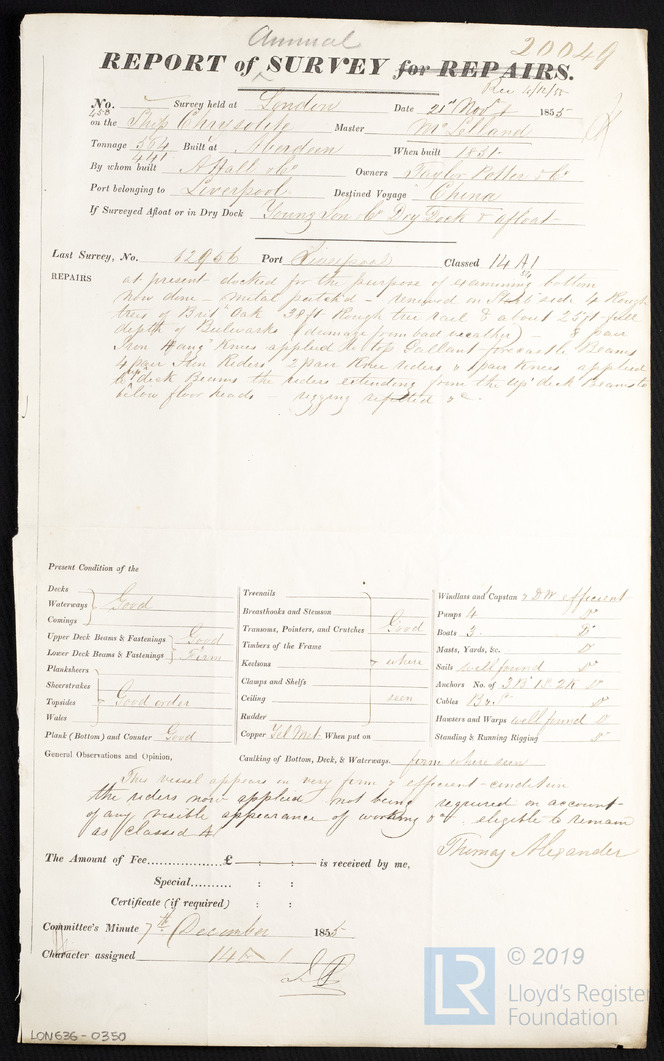 Annual
20049
REPORT of SURVEY for REPAIRS.
Rec 4/12/55
No. 458 Survey held at London Date 21st Novr 1855
on the Ship Chrisolite Master McLelland
Tonnage 564 Built at Aberdeen When built 1851
441
By whom built A Hall & Co Owners Taylor Potter & Co
Port belonging to Liverpool Destined Voyage China
If Surveyed Afloat or in Dry Dock Young Son & Co Dry Dock & afloat
Last Survey, No. 12956 Port Liverpool Classed 14 A1
REPAIRS at present docked for the purpose of examining bottom
now done - metal patch'd - renewed on side 4 Rough
trees of Brit Oak 38 ft Rough tree rail & about 25 ft full
depth of Bulwarks (damage from bad weather) - 8 pair
Iron Hang Knees applied to top Gallant forecastle Beams
4 pair Iron Riders 2 pair Knee riders & 1 pair Knees applied
to up deck Beams the riders extending from the up deck Beams to
below floor heads - rigging refitted &c.
Present Condition of the
Decks
Waterways Good
Comings
Upper Deck Beams & Fastenings Good
Lower Deck Beams & Fastenings Firm
Planksheers
Sheerstrakes
Topsides Good order
Wales
Plank (Bottom) and Counter Good
Treenails
Breasthooks and Stemson
Transoms, Pointers, and Crutches Good
Timbers of the Frame
Keelsons where
Clamps and Shelfs
Ceiling seen
Rudder
Copper Yel Met When put on
Windlass and Capstan & DW efficient
Pumps 4 Do
Boats 3 Do
Masts, Yards, &c. Do
Sails well found Do
Anchors No. of 3 B 1 S 2 K Do
Cables Do
Hawsers and Warps well found Do
Standing & Running Rigging Do
General Observations and Opinion, Caulking of Bottom, Deck, & Waterways. firm where seen
This vessel appears in very firm & efficient condition
the riders now applied not being required on account
of any visible appearance of working &c eligible to remain
as classed A
Thomas Alexander
The Amount of Fee................£ : : is received by me,
Special.......... : :
Certificate (if required) : :
Committee's Minute 7th December 1855
Character assigned 14 A 1
© 2019
LR
Lloyd's Register
Foundation
LON636-0350